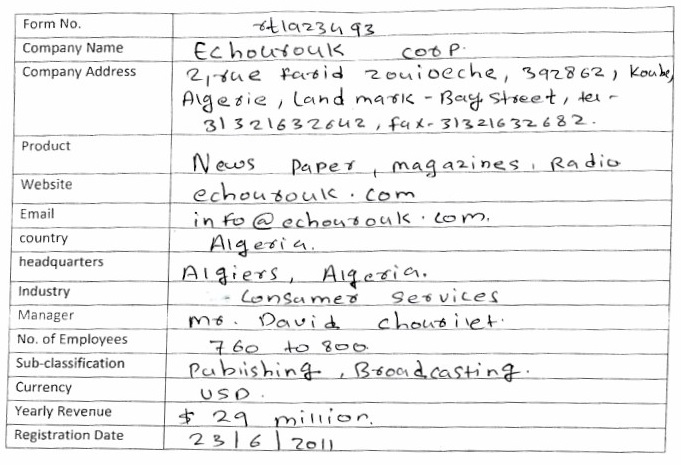 Form No. rt1923493
Company Name Echourouk corp.
Company Address 2, rue farid zouioeche, 392862, Kouba,
Algerie, Land mark - Bay Street, tel -
31321632642, fax - 31321632682.
Product News paper, magazines, Radio
Website echourouk.com
Email info@echourouk.com.
country Algeria.
headquarters Algiers, Algeria.
Industry - Consumer Services
Manager mr. David chourilet.
No. of Employees 760 to 800
Sub-classification Publishing, Broadcasting.
Currency USD.
Yearly Revenue $ 29 million.
Registration Date 23/6/2011